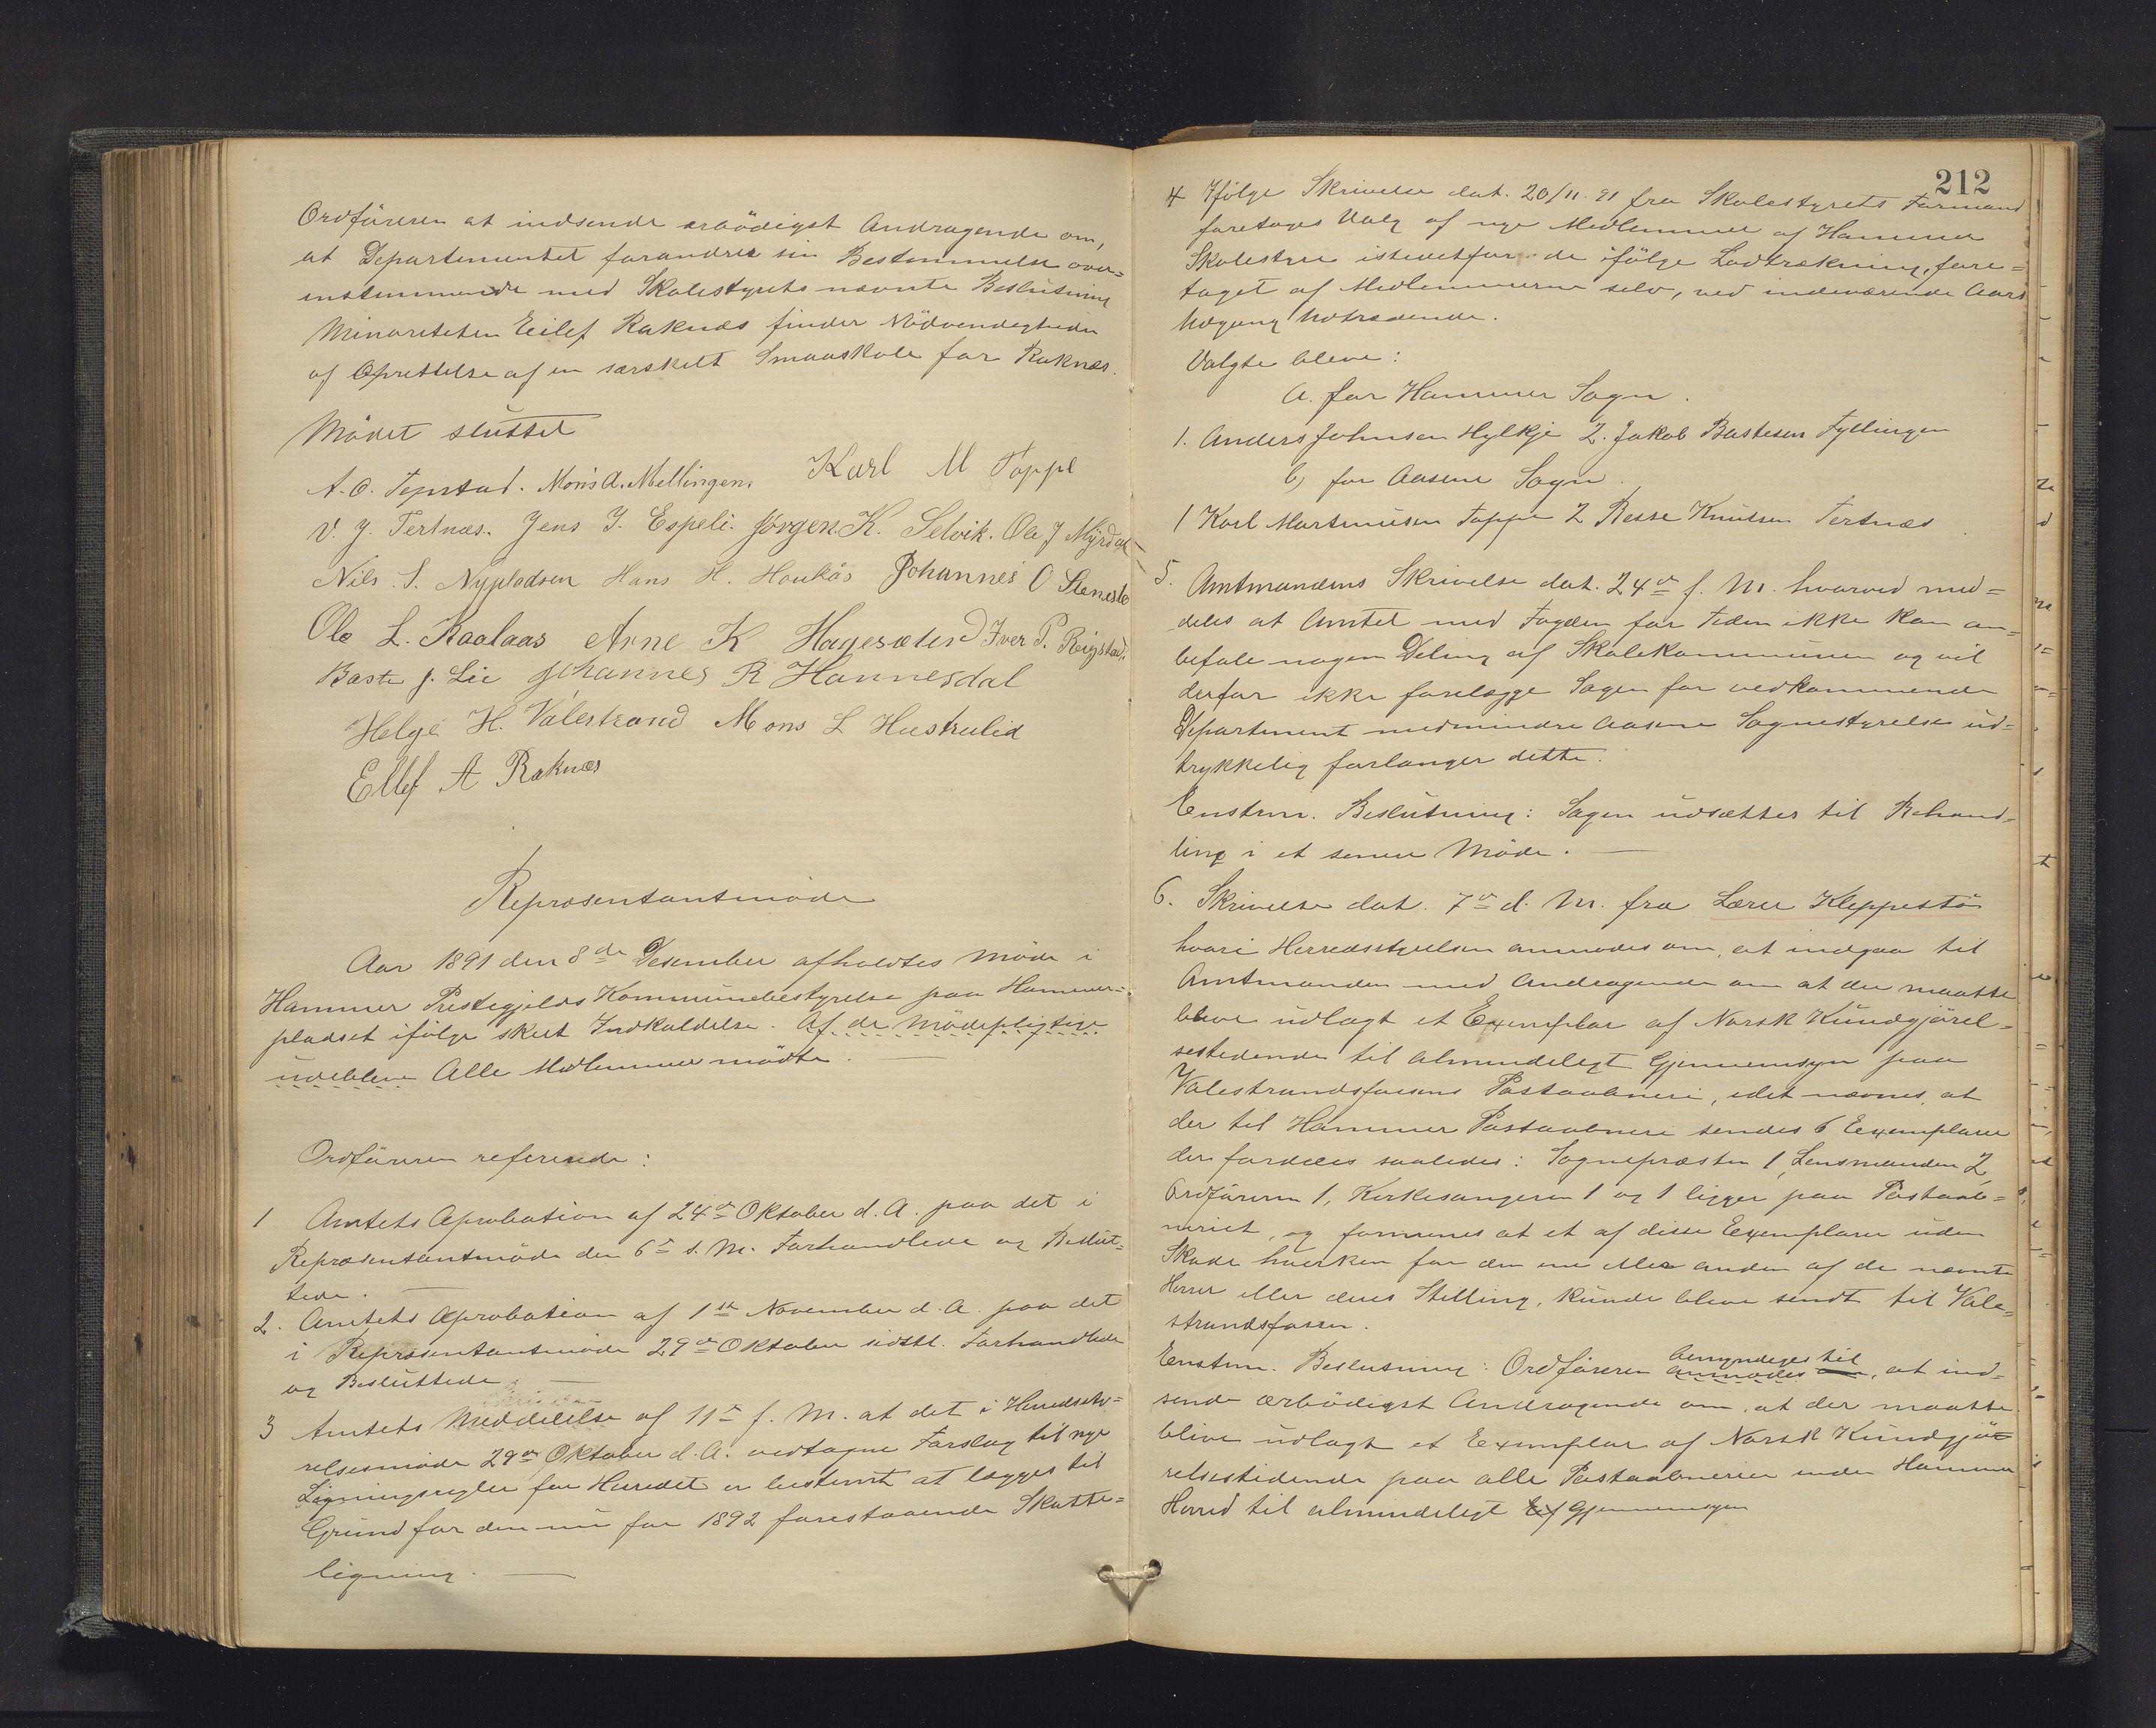 Ordføreren at indsende ærbødigst Andragende om,
at Departementet forandrer sin Bestemmelse over=
enstemmende med Skolestyrets nævnte Beslutning
Minoriteten Eilef Raknæs finder Nødvendigheden
af Oprettelse af en særskilt Smaaskole for Raknæs.
Mødet sluttet
A. O. Tepstad. Mons A. Mellingen. Karl M Toppe
V. J. Tertnæs. Jens J. Espeli. Jørgen K. Selvik. Ole J Myrdal
Nils S. Nyplodsen Hans H. Houkås Johannes O Stenestø
Ole L. Kaalaas Arne K Hagesæter Iver P. Reigstad.
Baste J. Lie Johannes R Hannesdal
Helge H. Valestrand Mons L Hustrulid
Ellef A Raknæs
Repræsentantmøde
Aar 1891 den 8de Desember afholdtes Møde i
Hammer Prestegjelds Kommunebestyrelse paa Hammers=
pladset ifølge skeet Indkaldelse. Af de Mødepligtige
udebleve Alle Medlemmer mødte.
Ordføreren refererede:
1 Amtets Aprobation af 24de Oktober d. A. paa det i
Repræsentantmøde den 6te s. M. Forhandlede og Beslut=
tede.
2. Amtets Aprobation af 1ste November d. A. paa det
i Repræsentantmøde 29de Oktober sidstl. Forhandlede
og Besluttede
3 Amtets Meddelelse af 11te f. M. at det i Herredssty=
relsesmøde 29de Oktober d. A. vedtagne Forslag til nye
Ligningsregler for Herredet er bestemt at lægges til
Grund for den nu for 1892 forestaaende Skatte=
ligning.
212
4 Ifølge Skrivelse dat. 20/11. 91 fra Skolestyrets Formand
foretoges Valg af nye Medlemmer af Hammer
Skolestyre istedetfor de ifølge Lodtrækning, fore=
taget af Medlemmerne selv, ved indeværende Aars
Udgang Udtrædende.
Valgte bleve:
A. for Hammer Sogn.
1. Anders Johnsen Hylkje 2. Jakob Bastesen Fyllingen
b) for Aasene Sogn.
1 Karl Martinusen Toppe 2 Resse Knutsen Tertnæs
5. Amtmandens Skrivelse dat. 24de f. M. hvorved med=
deles at Amtet med Fogden for Tiden ikke kan an=
befale nogen Deling af Skolekommunen og vil
derfor ikke forelægge Sagen for vedkommende
Department medmindre Aasene Sognestyrelse ud=
trykkelig forlanger dette.
Enstem. Beslutning: Sagen udsættes til Behand=
ling i et senere Møde.
6. Skrivelse dat. 7de d. M. fra Lærer Kleppestø
hvori Herredsstyrelsen anmodes om, at indgaa til
Amtmanden med Andragende om at der maatte
blive udlagt et Exemplar af Norsk Kundgjørel=
sestidende til almindeligt Gjennemsyn paa
Valestrandsfossens Postaabneri, idet nævnes, at
der til Hammer Postaabneri sendes 6 Exemplarer
der fordeles saaledes: Sognepræsten 1, Lensmanden 2,
Ordføreren 1, Kirkesangeren 1 og 1 ligger paa Postaab=
neriet, og formenes at et af disse Exemplarer uden
Skade hverken for den ene eller anden af de nævnte
Herrer eller deres Stilling, kunde blive sendt til Vale=
strandsfossen.
Enstem. Beslutning: Ordføreren anmodes om bemyndiges til, at ind=
sende ærbødigst Andragende om, at der maatte
blive udlagt et Exemplar af Norsk Kundgjø=
relsestidende paa alle Postaabnerier inden Hammer
Herred til almindeligt Gjennemsyn